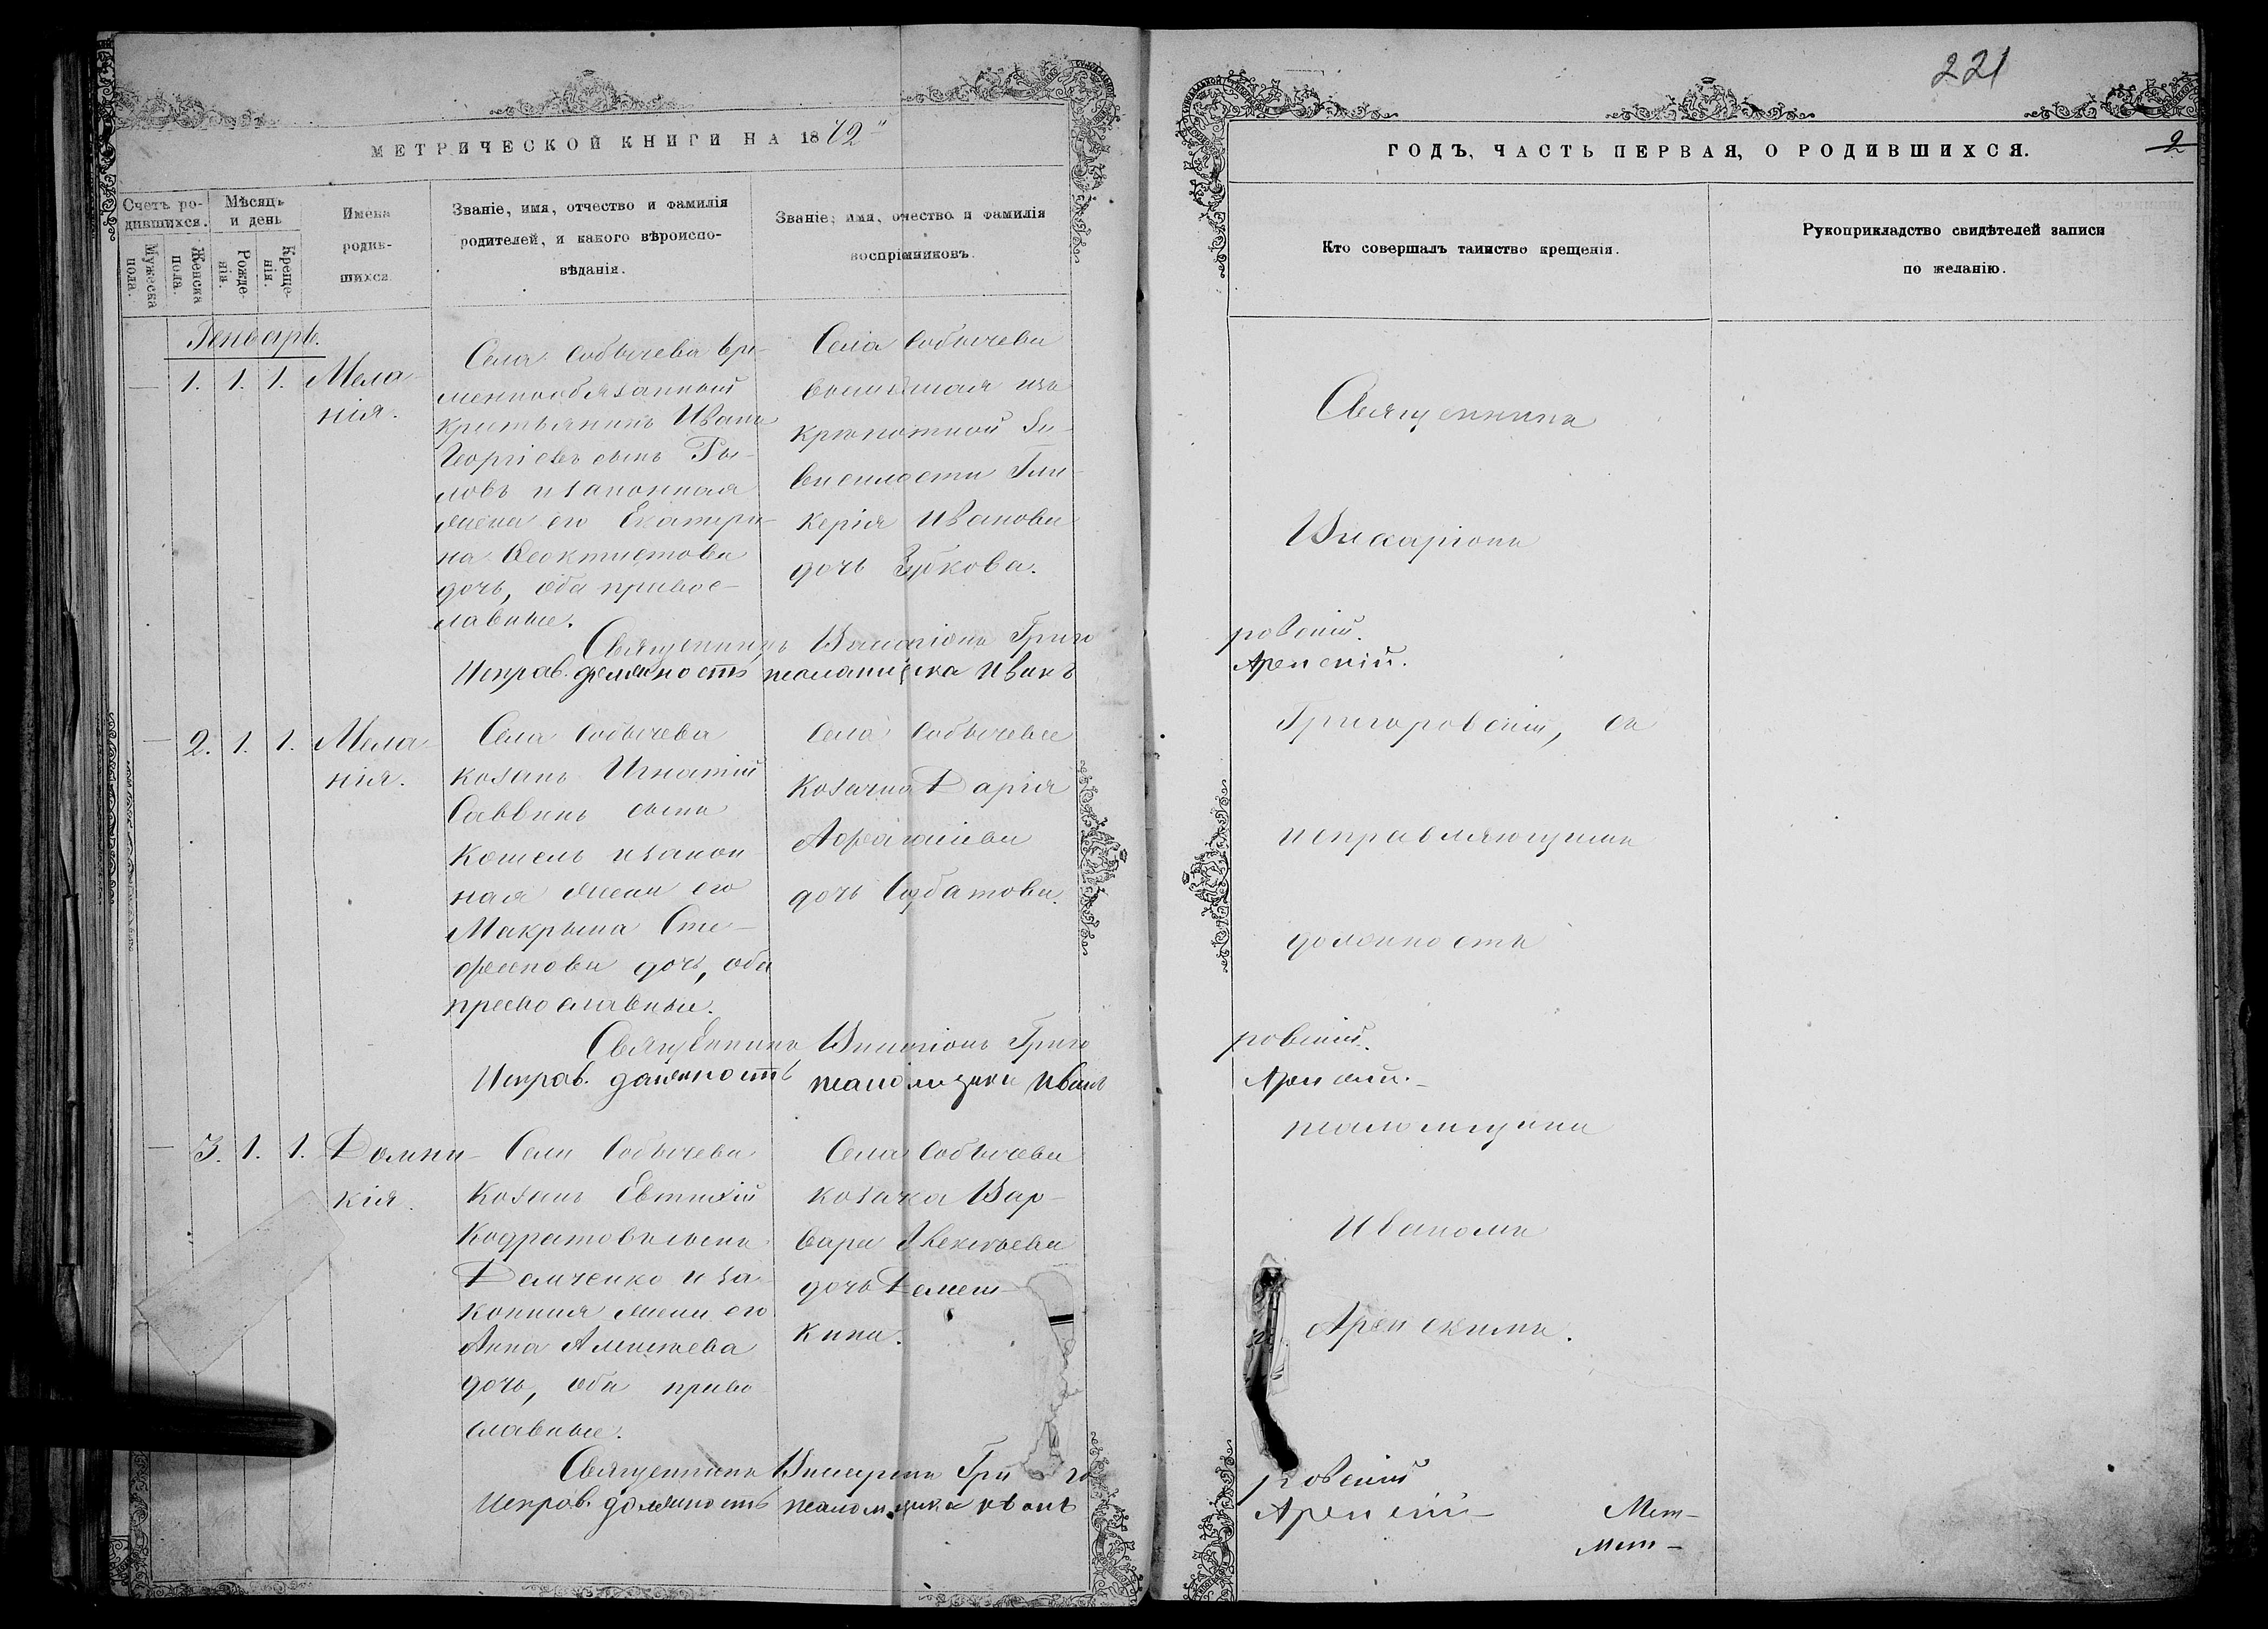 221
МЕТРИЧЕСКОЙ КНИГИ НА 1872
ГОДЪ, ЧАСТЬ ПЕРВАЯ, О РОДИВШИХСЯ.
2
Счетъ ро-
дившихся.
Мужеска
пола.
Женска
пола.
Мѣсяцъ
и день
Рожде-
нія.
Креще-
нія.
Имена
родив-
шихся
Званіе, имя, отчество и фамилія
родителей, и какого вѣроиспо-
вѣданія.
Званіе, имя, очество и фамилія
воспріемниковъ.
Кто совершалъ таинство крещенія.
Рукоприкладство свидѣтелей записи
по желанію.
Генварь.
1. 1. 1. Мела-
нія.
Села Собычева вре-
меннообязанный
крестьянинъ Иванъ
Георгіевъ сынъ
и законная
жена его Екатери-
на Феоктистова
дочь, оба правос-
лавные.
Села Собычева
вышедшая изъ
крепостной за-
висимости Гли-
керія Иванова
дочь Зубкова.
Священникъ Виссаріонъ Григо
ровскій.
Исправ. должность псаломщика Иванъ
Аренскій.
2. 1. 1. Мела-
нія.
Села Собычева
козакъ Игнатій
Саввинъ сынъ
Кошель и закон
ная жена его
Макрына Сте-
фанова дочь, оба
православные.
Села Собычева
козачка Дарія
дочь
Священникъ Виссаріонъ Григо
ровскій.
Исправ. должность псаломщика Иванъ
Аренскій.-
3. 1. 1. Домни-
кія.
Села Собычева
козакъ Евтихій
Кодратовъ сынъ
Демченко и за
конная жена его
Анна
дочь, оба право
славные.
Села Собычева
козачка Вар-
вара
дочь Демеш-
кина.
Священникъ Виссаріонъ Григо
ровскій
Исправ. должность псаломщика Иванъ
Аренскій-
Священникъ
Виссаріонъ
Григоровскій, съ
исправляющимъ
должность
псаломщика
Иваномъ
Аренскимъ.
Мет-
Мет-